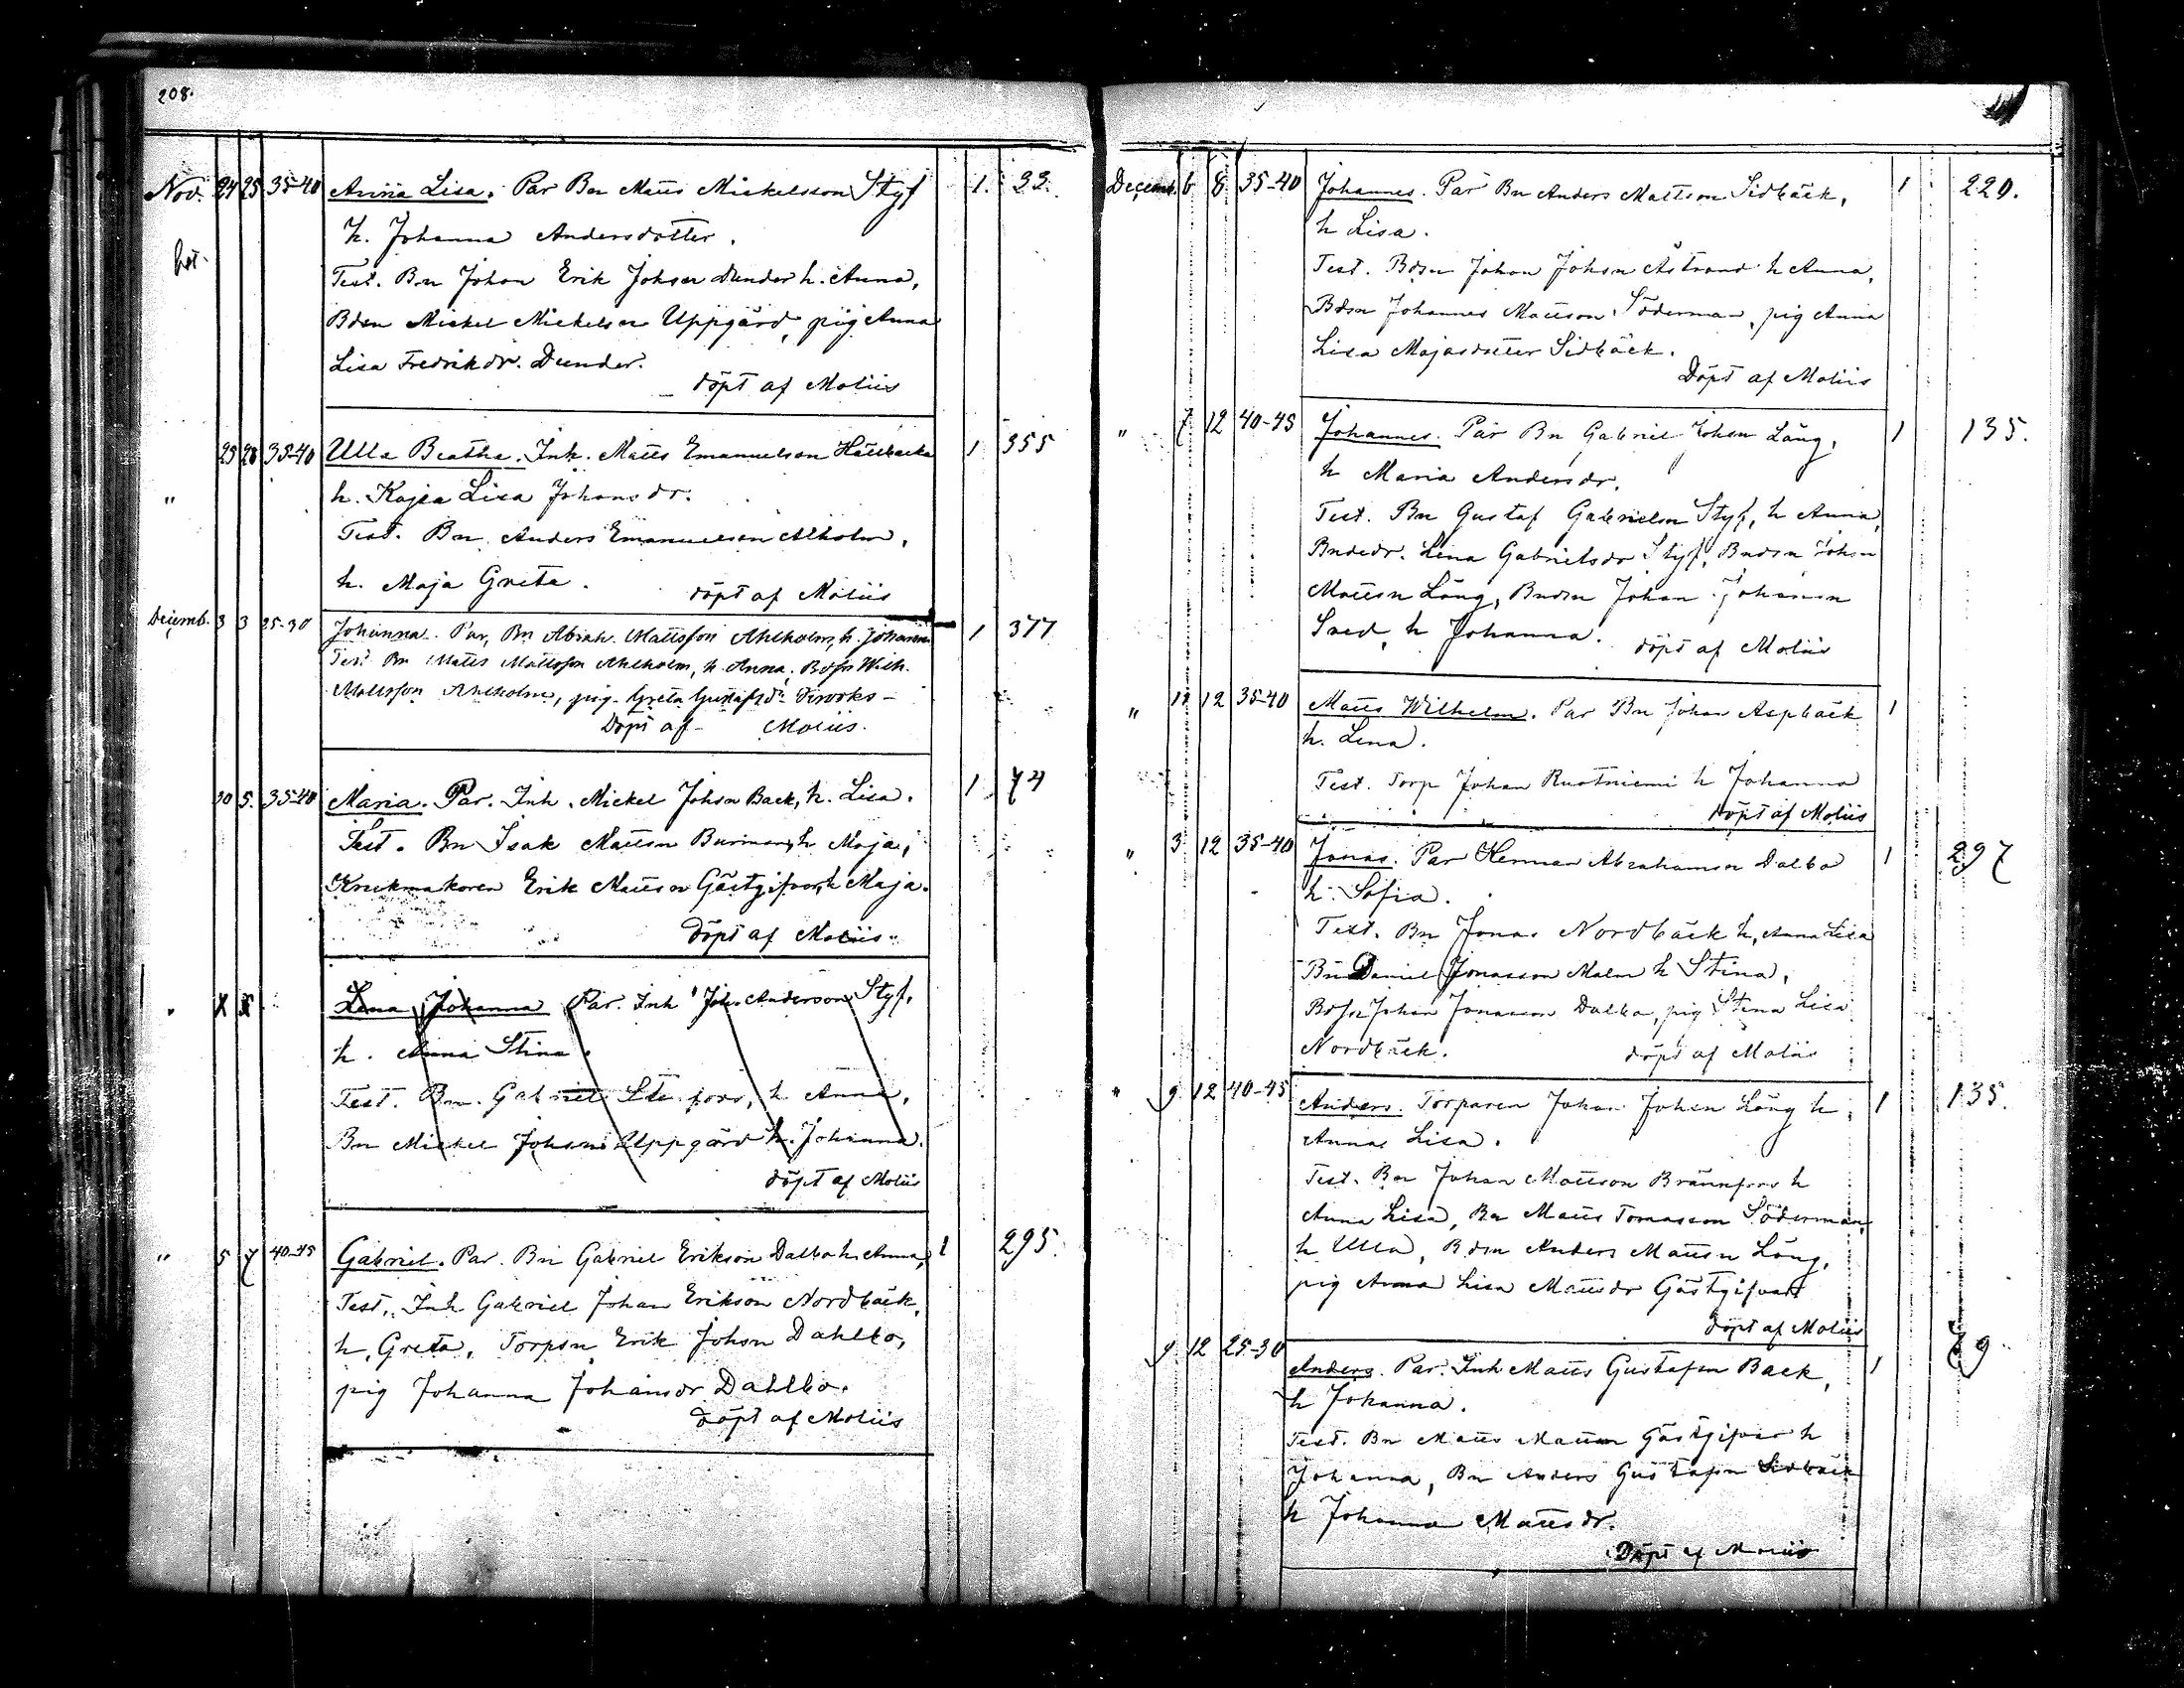 208.
Nov. 24 25 35-40 Anna Lisa. Par Bn Matts Mickelsson Styf 1. 22.
h. Johanna Andersdotter.
Test. Bn Johan Erik Johsn Dunder h. Anna,
Bdsn Mickel Mickelsn Uppgård, pig Anna
Lisa Fredrikdr. Dunder.
döpt af Moliis
" 25 28 35-40 Ulla Beatha. Inh. Matts Emanuelson Hattbacka 1 355
h. Kajsa Lisa Johansdr.
Test. Bn Anders Emanuelson Ahlholm,
h. Maja Greta.
döpt af Moliis
Decemb. 3 3 25-30 Johanna. Par, Bn Abrah. Mattsson Ahlholm, h. Johanna 1 377
Test Bn Matts Mattsson Ahlholm, h. Anna, Bdsn Wilh.
Mattsson Ahlholm, pig. Greta Gustafsdr
Döpt af Moliis.
30 5. 35-40 Maria. Par. Inh. Mickel Johsn Back, h. Lisa. 1 74
Test. Bn Isak Mattsn Burman, h Maja,
Krukmakaren Erik Mattsn Gästgifvar, h Maja.
döpt af Moliis
X X Lena Johanna Par. Inh Joh. Anderson Styf,
h. Anna Stina.
Test. Bn. Gabriel h Anna,
Bn Mickel Johsn Uppgård h. Johanna.
döpt af Moliis
" 5 7 40-45 Gabriel. Par. Bn Gabriel Erikson Dalbo h. Anna, 1 295.
Test. Inh Gabriel Johan Erikson Nordbäck,
h. Greta. Torpsn Erik Johsn Dahlbo,
pig Johanna Johansdr Dahlbo.
döpt af Moliis
Decemb. 6 8 35-40 Johannes. Par Bn Anders Mattson Sidbäck, 1 220.
h Lisa.
Test. Bdsn Johan Johsn Åstrand h Anna,
Bdsn Johannes Mattson Söderman, pig Anna
Lisa Majasdotter Sidbäck.
Döpt af Moliis
" 7 12 40-45 Johannes. Par Bn Gabriel Johsn Lång, 1 135.
h Maria Andersdr.
Test. Bn Gustaf Gabrielsn Styf, h Anna,
Bndedr. Lena Gabrielsdr Styf, Bndsn Johsn
Mattsn Lång, Bndsn Johan Johansn
Sved, h Johanna. döpt af Moliis
" 11 12 35-40 Matts Wilhelm. Par Bn Johan Aspbäck 1
h. Lena.
Test. Torp Johan Ruotniemi h Johanna
döpt af Moliis
" 3 12 35-40 Jonas. Par Herman Abrahamsn Dalbo 1 297
h. Sofia.
Test. Bn Jonas Nordbäck h. Anna Lisa
Bn Daniel Jonasson Malm h Stina,
Bdsn Johan Jonasson Dalbo, pig Stina Lisa
Nordbäck. döpt af Moliis
" 9 12 40-45 Anders. Torparen Johan Johsn Lång h 1 135.
Anna Lisa.
Test. Bn Johan Mattson Brännfors h
Anna Lisa, Bn Matts Tomasson Söderman,
h Ulla, Bdsn Anders Mattsn Lång,
pig Anna Lisa Mattsdr Gästgifvar
döpt af Moliis
9 12 25-30 Anders. Par. Inh Matts Gustafsn Back, 1 79
h Johanna.
Test. Bn Matts Mattsn Gästgifvar h
Johanna, Bn Anders Gustafsn Sidbäck
h Johanna Mattsdr.
Döpt af Moliis